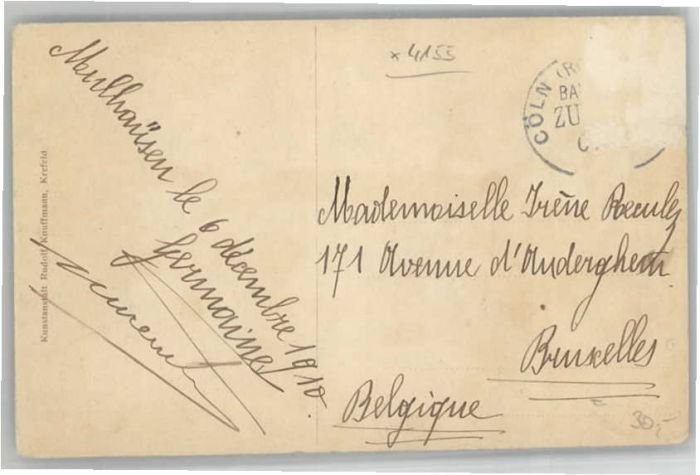 Meulhaüsen le 6 décembre 1910.
Germaine
Kunstanstalt Rudolf Knuffmann, Krefeld
× 4155
CÖLN (R
BA
ZU
Mademoiselle Irène
171 Avenue d'Auderghem
Bruxelles
Belgique
30,-